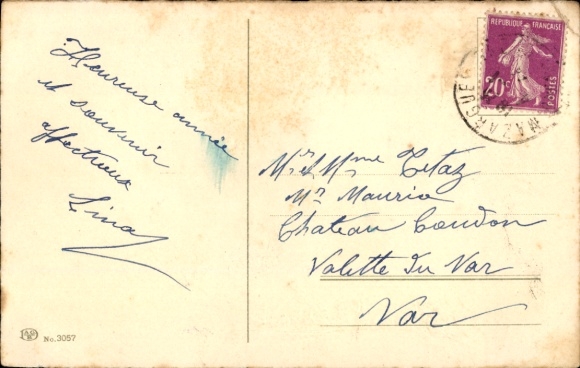 Heureuse année
et souvenir
affectueux
Lina
REPUBLIQUE FRANÇAISE
20c
POSTES
MAZARGUES
Mr et Mme Titaz
Mr Mauria
Chateau Coudon
Valette du Var
Var
No. 3057